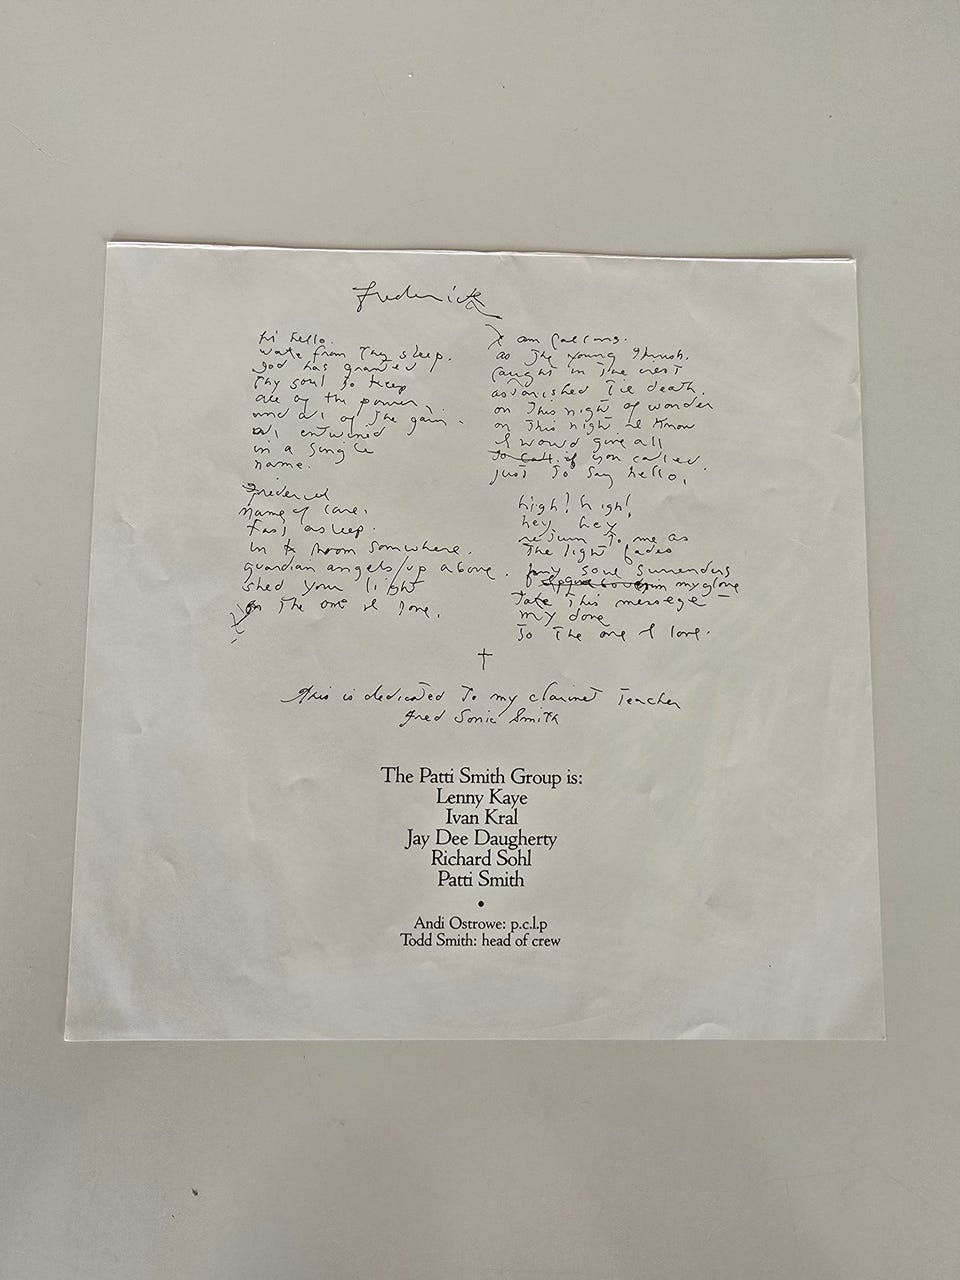 Frederick
hi hello.
wake from thy sleep.
god has granted
thy soul to keep
all of the power
and all of the gain.
all entwined
in a single
name.
Frederick
name of care.
fast asleep.
in a room somewhere.
guardian angels/up above.
shed your light
on the one I love.
I am
as the young thrush.
caught in the
astonished
on this night of wonder
on this night I know
I would give all
to call if you called.
just to say hello.
high! high!
hey, hey
return to me as
the light fades
my soul surrenders
my glove
take this message
my dove
to the one I love.
†
this is dedicated to my clarinet teacher
fred sonic smith
The Patti Smith Group is:
Lenny Kaye
Ivan Kral
Jay Dee Daugherty
Richard Sohl
Patti Smith
•
Andi Ostrowe: p.c.l.p
Todd Smith: head of crew